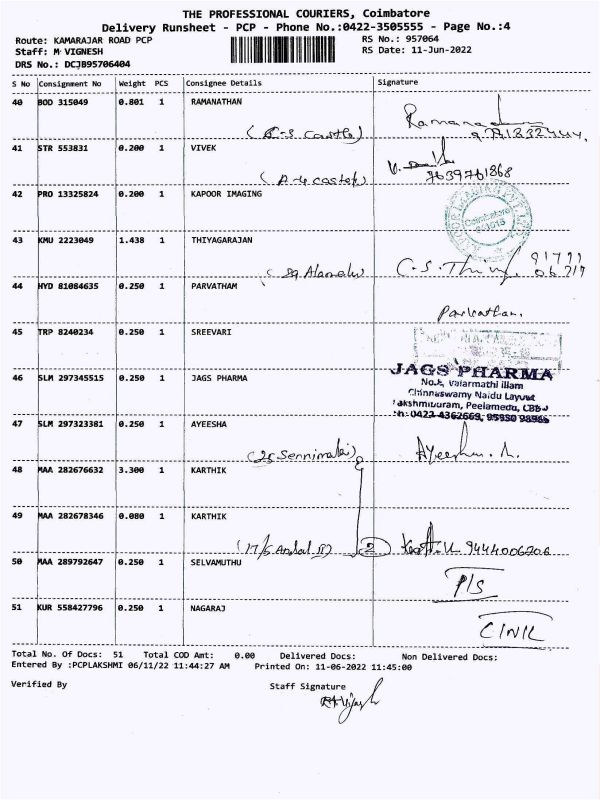 THE PROFESSIONAL COURIERS, Coimbatore
Delivery Runsheet - PCP - Phone No.:0422-3505555 - Page No.:4
Route: KAMARAJAR ROAD PCP RS No.: 957064
Staff: M VIGNESH RS Date: 11-Jun-2022
DRS No.: DCJB95706404
S No Consignment No Weight PCS Consignee Details Signature
40 BOD 315049 0.801 1 RAMANATHAN
41 STR 553831 0.200 1 VIVEK
7639761868
42 PRO 13325824 0.200 1 KAPOOR IMAGING
Coimbatore
43 KMU 2223049 1.438 1 THIYAGARAJAN
44 HYD 81084635 0.250 1 PARVATHAM
Parvatham.
45 TRP 8240234 0.250 1 SREEVARI
46 SLM 297345515 0.250 1 JAGS PHARMA
JAGS PHARMA
Valarmathi Illam
Chinnaswamy Naidu Layout
Lakshmipuram, Peelamedu, CBE-4
Ph: 0422 4362669,
47 SLM 297323381 0.250 1 AYEESHA
48 MAA 282676632 3.300 1 KARTHIK
49 MAA 282678346 0.080 1 KARTHIK
(17/5 Andal II) 2 9444006206
50 MAA 289792647 0.250 1 SELVAMUTHU
P/S
51 KUR 558427796 0.250 1 NAGARAJ
Total No. Of Docs: 51 Total COD Amt: 0.00 Delivered Docs: Non Delivered Docs:
Entered By :PCPLAKSHMI 06/11/22 11:44:27 AM Printed On: 11-06-2022 11:45:00
Verified By Staff Signature